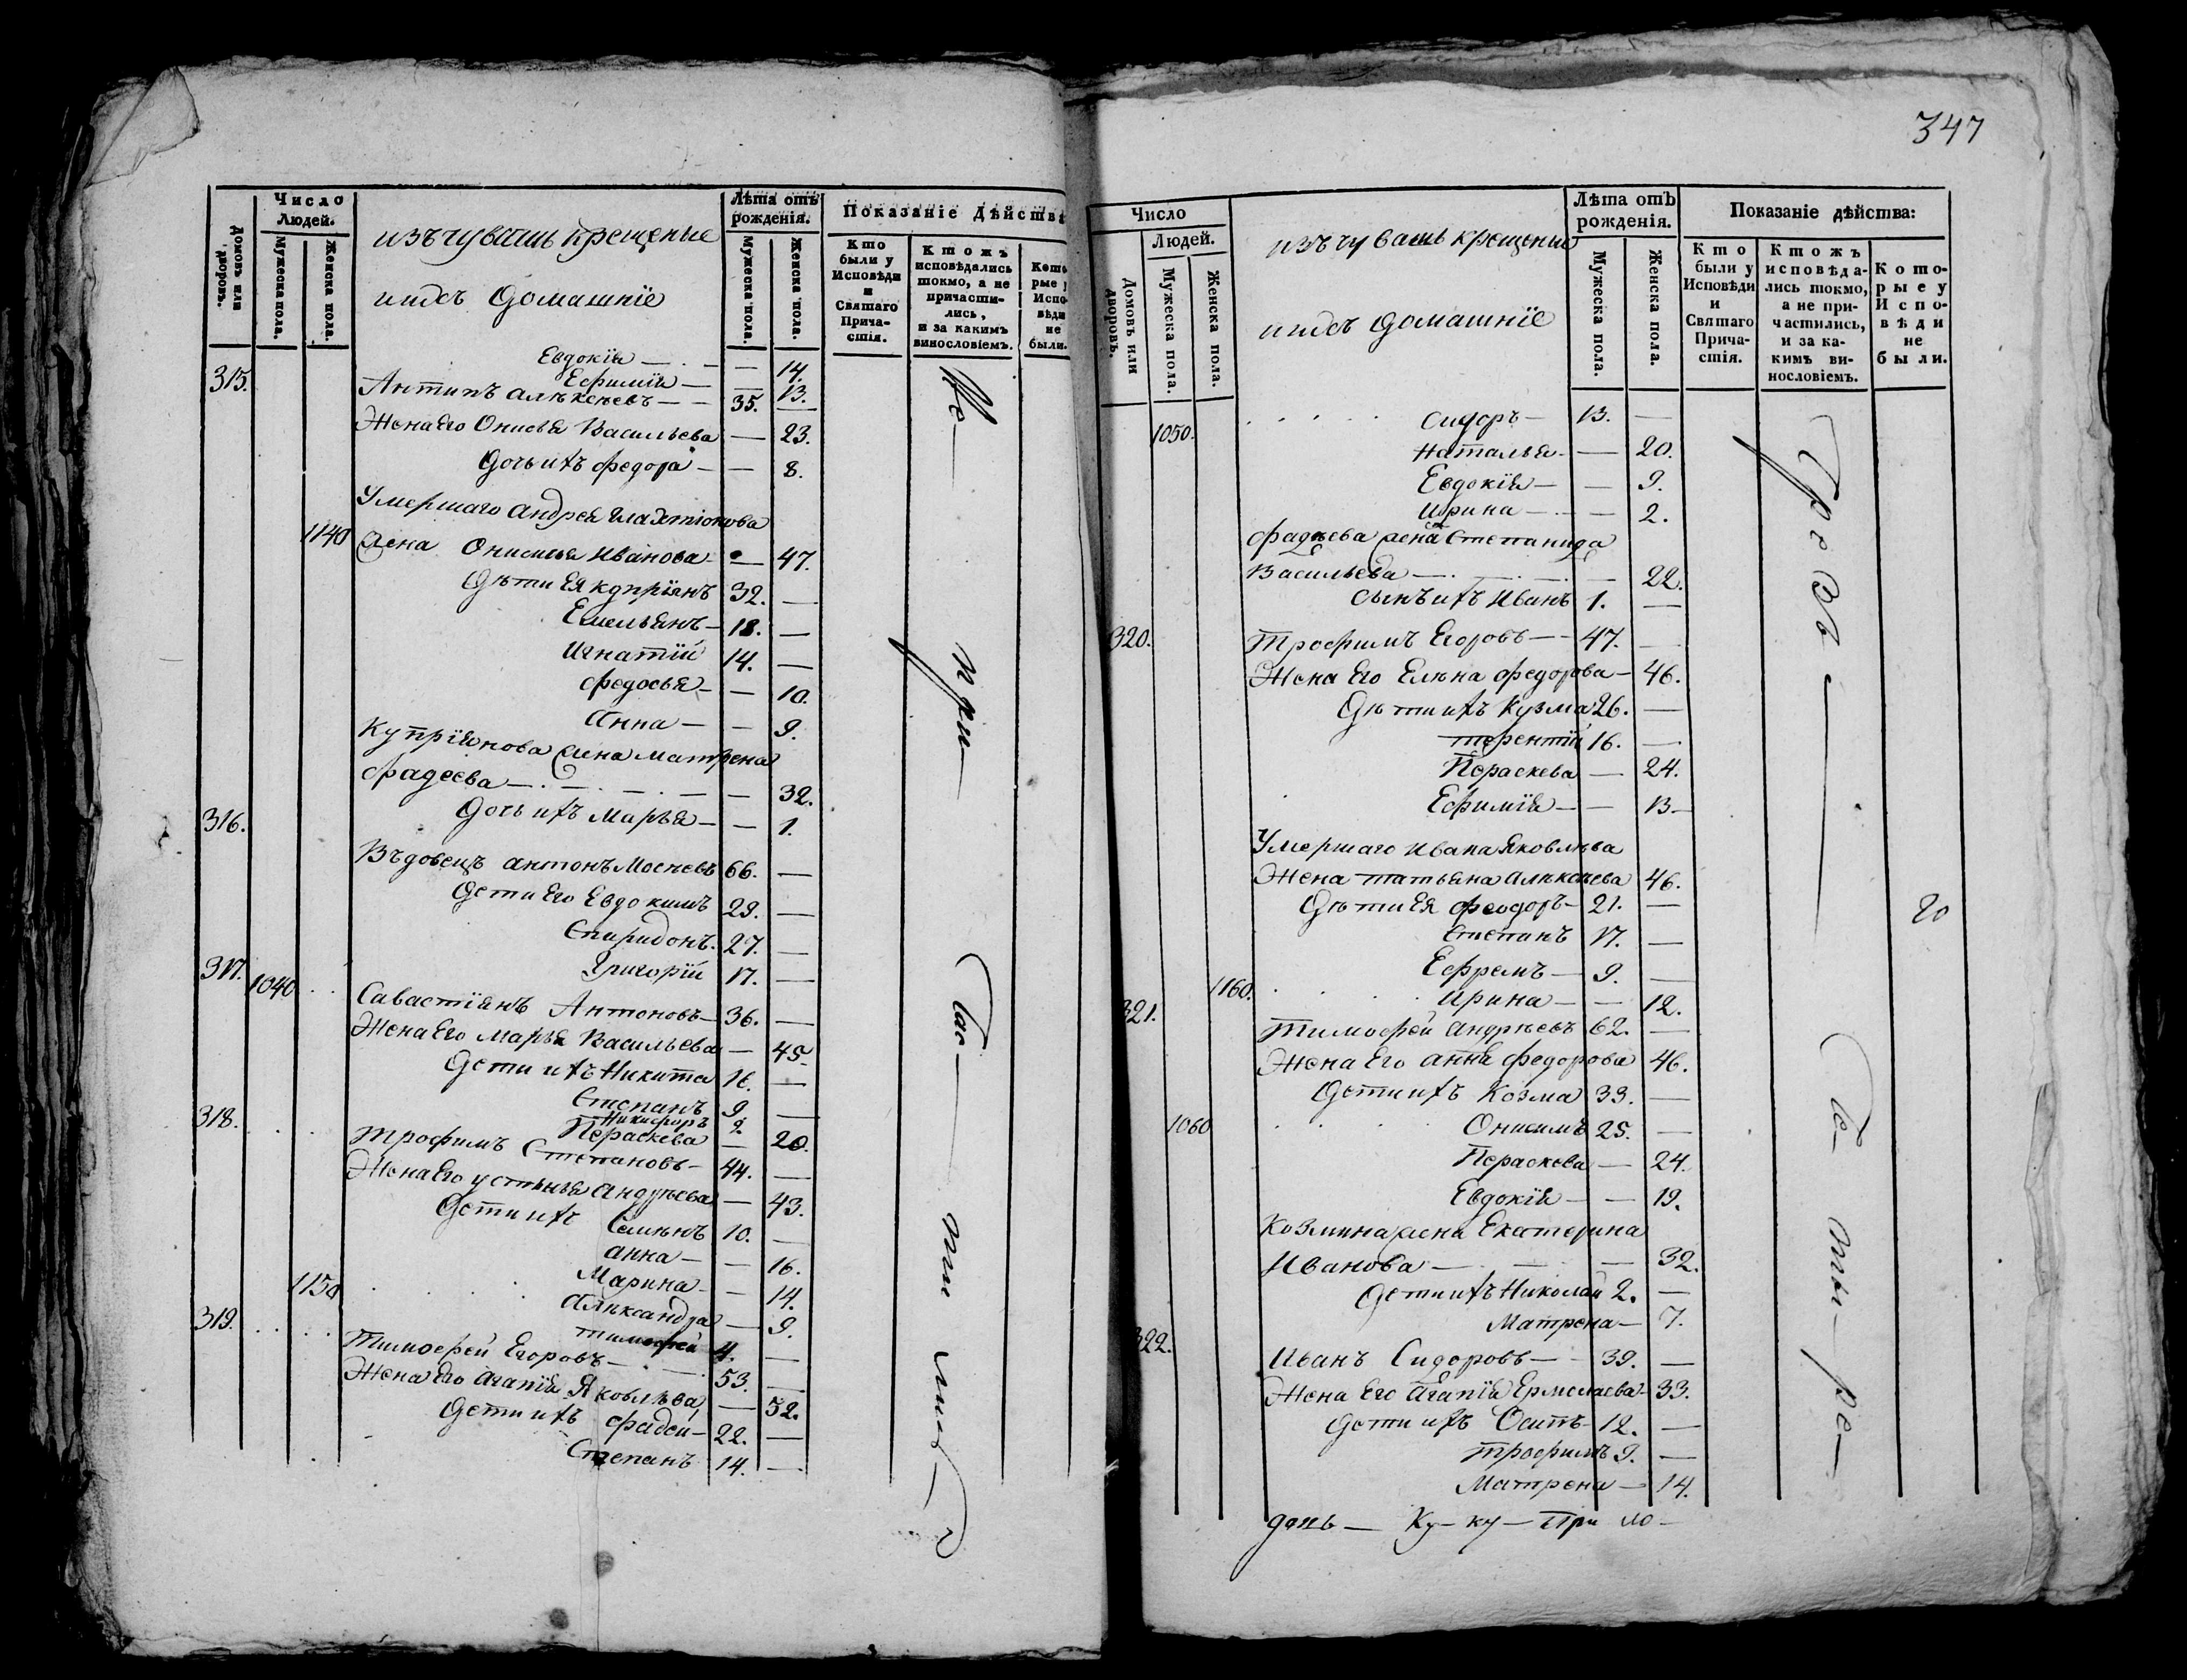 Число
Людей.
Домовъ или дворовъ.
Мужеска пола.
Женска пола.
изъ чувашъ крещеные
и ихъ домашнїе
Лѣта отъ рожденія.
Мужеска пола.
Женска пола.
Показаніе Дѣйства
Кто были у Исповѣди и Святаго Причастія.
Ктожъ исповѣдались токмо, а не причастились, и за какимъ винословіемъ.
Которые у Исповѣди не были.
Евдокїя — — 14.
Ефимїя — — 13.
315. Антипъ Алѣксѣевъ — 35. —
Жена его Онисья Васильева — 23.
Дочь ихъ Федора — — 8.
Умершаго Андрея
1140 жена Онисья Иванова — 47.
Дѣти Ея Купрїянъ 32. —
Емельянъ — 18. —
Игнатїй 14. —
Федосья — — 10.
Анна — — 9.
Купрїянова жена Матрена
Фадеева — — — 32.
Дочь ихъ Марья — — 1.
316.
Въдовецъ Антонъ Мосѣевъ 66. —
Дети Его Евдокимъ 29. —
Спиридонъ. 27. —
Григорїй 17. —
317. 1040
Савастїянъ Антоновъ — 36. —
Жена Его Марья Васильева — 45.
Дети ихъ Никита 16. —
Степанъ 9. —
Никифоръ 2.
Пераскева — 20.
318. Трофимъ Степановъ — 44. —
Жена Его Устинья Андрѣева — 43.
Дети ихъ Семѣнъ 10. —
Анна — — 16.
1150 Марина — — 14.
Алѣксандра — 9.
Тимофей 4. —
319. Тимофей Егоровъ — 53. —
Жена Его Агапїя Яковлѣва, — 52.
Дети ихъ Фадей — 22. —
Степанъ 14. —
Не — при — час — ти лись
347
Число
Людей.
Домовъ или дворовъ.
Мужеска пола.
Женска пола.
изъ чувашъ крещеные
и ихъ домашнїе
Лѣта отъ рожденія.
Мужеска пола.
Женска пола.
Показаніе дѣйства:
Кто были у Исповѣди и Святаго Причастія.
Ктожъ исповѣдались токмо, а не причастились, и за какимъ винословіемъ.
Которые у Исповѣди не были.
1050. Сидоръ — 13. —
Наталья — — 20.
Евдокїя — — 9.
Ирина — — 2.
Фадѣева жена Степанида
Васильева — — 22.
Сынъ ихъ Иванъ 1. —
320. Трофимъ Егоровъ — 47. —
Жена Его Елѣна Федорова — 46.
Дѣти ихъ Кузма 26. —
Терентїй 16. —
Пераскева — 24.
Ефимїя — — 13 —
Умершаго Ивана Яковлѣва
Жена Татьяна Алѣксѣева 46.
Дѣти Ея Феодоръ — 21. —
Степанъ 17. —
Ефремъ — 9. —
1160. Ирина — — 12.
321. Тимофей Андрѣевъ 62. —
Жена Его Анна Федорова 46.
Дети ихъ Козма 33. —
1060 Онисимъ 25. —
Пераскева — 24.
Евдокїя — — 19.
Козмина жена Екатерина
Иванова — — 32.
Дети ихъ Николай 2. —
Матрена — 7.
322. Иванъ Сидоровъ — 39. —
Жена Его Агапїя Ермолаева — 33.
Дети ихъ Осипъ — 12. —
Трофимъ 9. —
Матрена — 14.